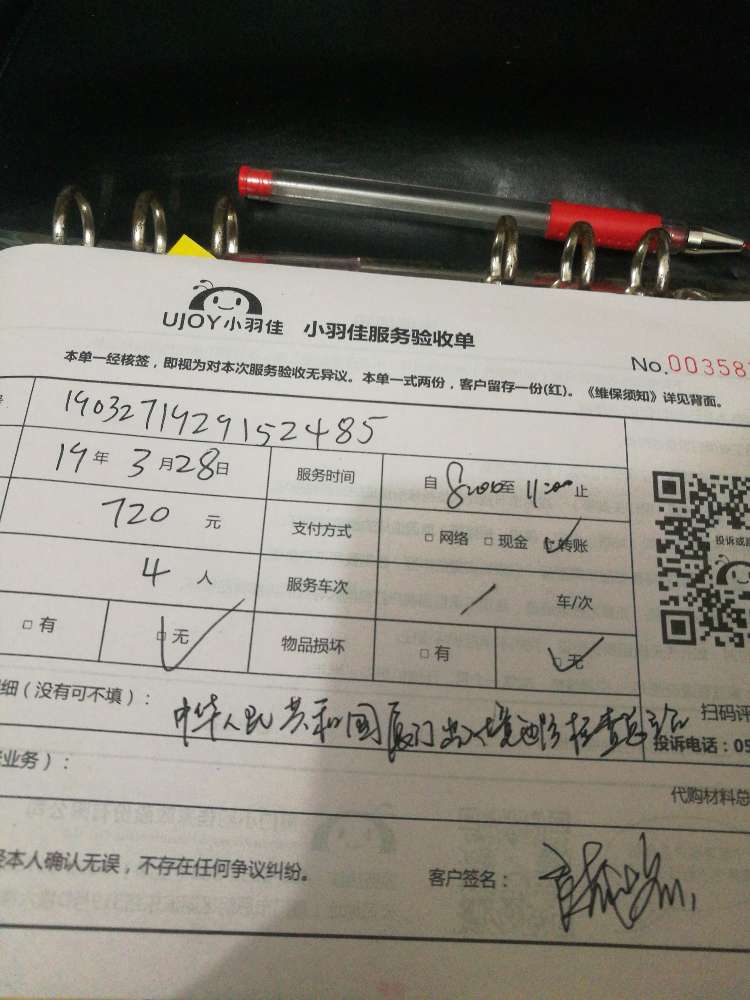 UJOY小羽佳 小羽佳服务验收单
No.00358
本单一经核签，即视为对本次服务验收无异议。本单一式两份，客户留存一份(红)。《维保须知》详见背面。
1903271929152485
19年3月28日 服务时间 自8:00至11:00止
720元 支付方式 □网络 □现金 ☑转账
4人 服务车次 / 车/次
□有 ☑无 物品损坏 □有 ☑无
细（没有可不填）： 中华人民共和国厦门出入境边防检查总站
扫码评
投诉电话：05
业务）：
代购材料总
经本人确认无误，不存在任何争议纠纷。 客户签名：